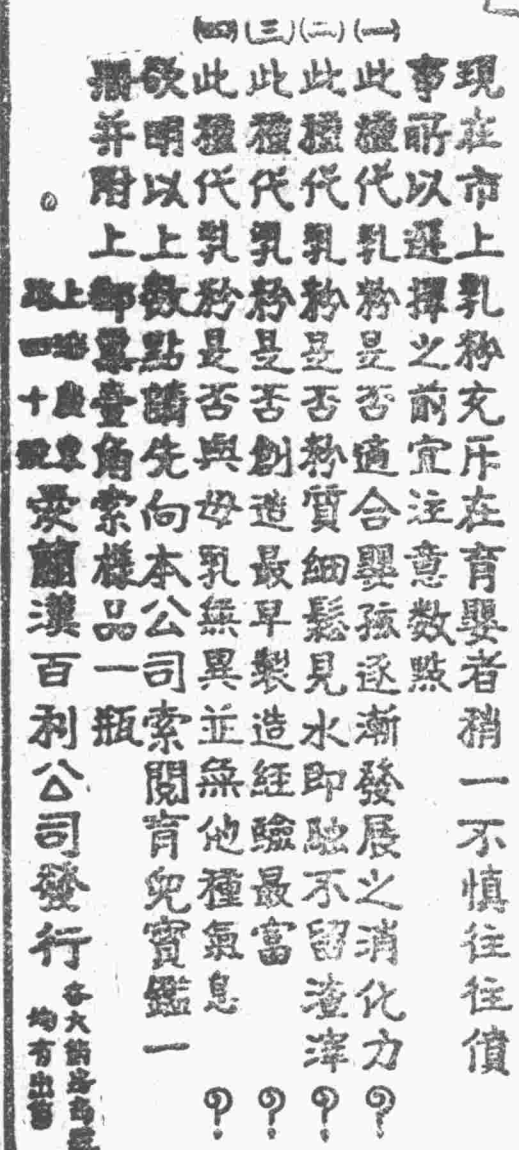 現在市上乳粉充斥在育嬰者稍一不慎往往僨
事所以選擇之前宜注意數點
(一)此種代乳粉是否適合嬰孩逐漸發展之消化力?
(二)此種代乳粉是否粉質細鬆見水即融不留渣滓?
(三)此種代乳粉是否創造最早製造經驗最富?
(四)此種代乳粉是否與母乳無異並無他種氣息?
欲明以上數點請先向本公司索閱育兒寶鑑一
冊并附上郵票壹角索樣品一瓶
上海廣東
路四十號
英蘭漢百利公司發行
均有出售